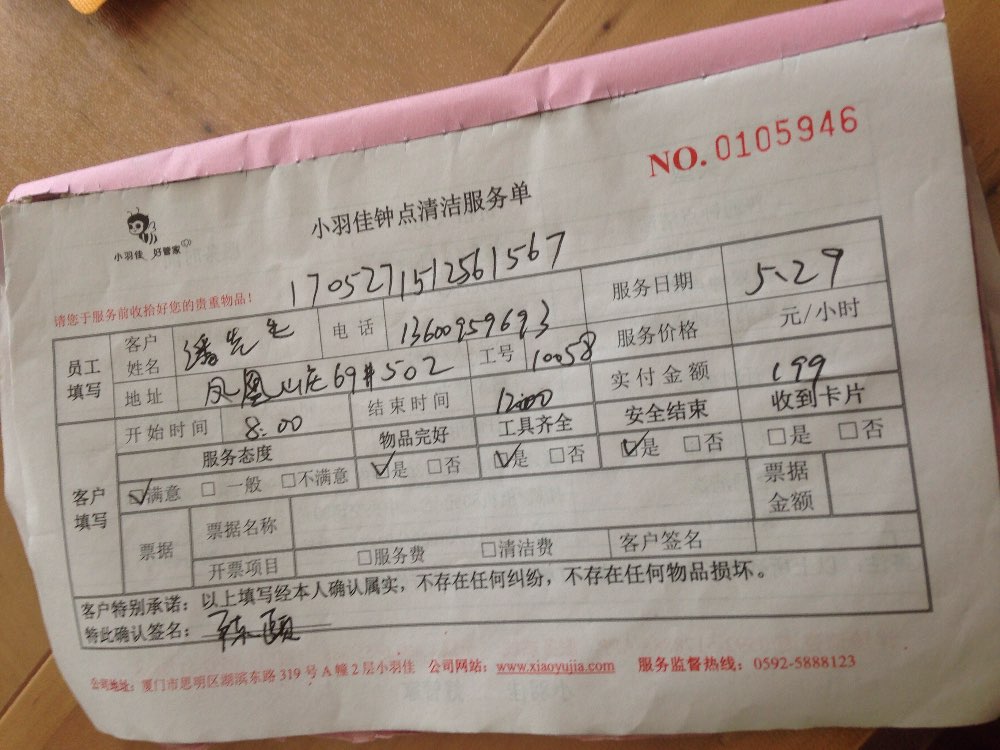 NO. 0105946
小羽佳 好管家
小羽佳钟点清洁服务单
170527151256​1567
请您于服务前收拾好您的贵重物品！
员工填写 客户姓名 潘先生 电话 13600959693 服务日期 5.29
地址 凤凰山庄69#502 工号 10058 服务价格 元/小时
开始时间 8:00 结束时间 12:00 实付金额 199
客户填写 服务态度 物品完好 工具齐全 安全结束 收到卡片
☑满意 □一般 □不满意 ☑是 □否 ☑是 □否 ☑是 □否 □是 □否
票据 票据名称 票据金额
开票项目 □服务费 □清洁费 客户签名
客户特别承诺：以上填写经本人确认属实，不存在任何纠纷，不存在任何物品损坏。
特此确认签名：
公司地址：厦门市思明区湖滨东路319号A幢2层小羽佳 公司网站：www.xiaoyujia.com 服务监督热线：0592-5888123